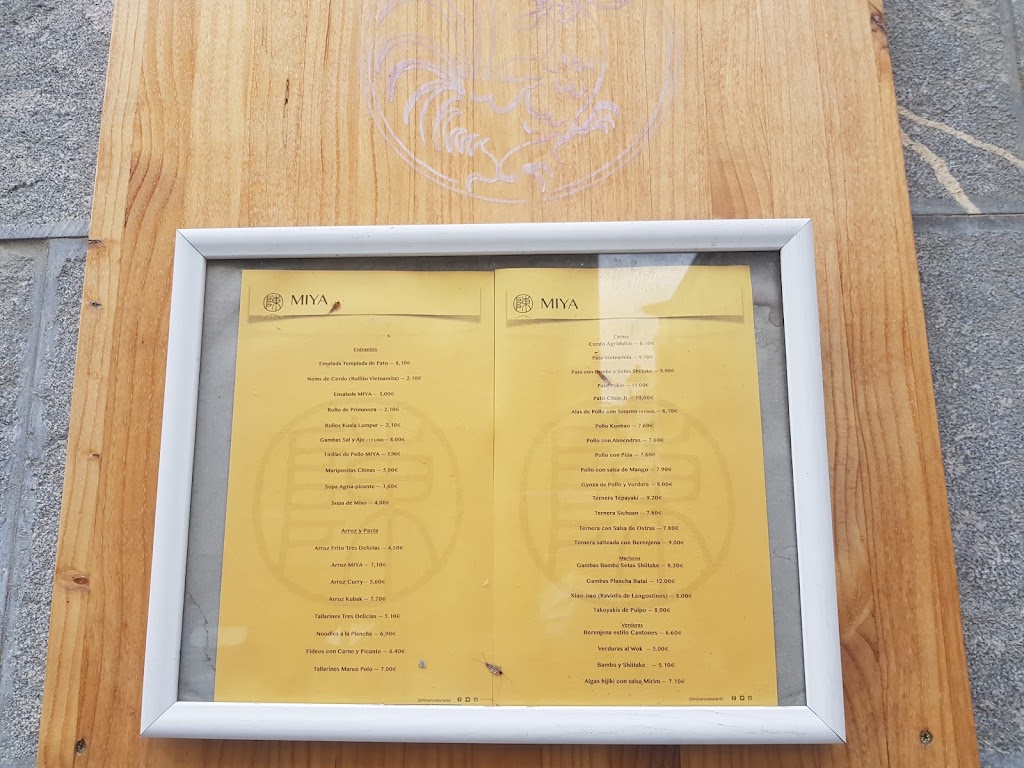 MIYA
Entrantes
Ensalada Templada de Pato — 8,10€
Nems de Cerdo (Rollito Vietnamita) — 2.10€
Ensalada MIYA — 5,00€
Rollo de Primavera — 2,10€
Rollos Kuala Lumpur — 2,10€
Gambas Sal y Ajo — 8.00€
Tirillas de Pollo MIYA —
Maripositas Chinas — 5,00€
Sopa Agria-picante — 3,60€
Sopa de Miso — 4,00€
Arroz y Pasta
Arroz Frito Tres Delicias — 4,50€
Arroz MIYA — 7,10€
Arroz Curry — 5,60€
Arroz Kabak — 7,70€
Tallarines Tres Delicias — 5.10€
Noodles a la Plancha — 6,90€
Fideos con Carne y Picante — 6.40€
Tallarines Marco Polo — 7.00€
MIYA
Carnes
Cerdo Agridulce — 6.50€
Pato Vietnamita — 9.70€
Pato con Bambú y Setas Shiitake — 9.90€
Pato Pekín — 15.00€
Pato Chon-Ji — 10,00€
Alas de Pollo con Sésamo — 6,10€
Pollo Konbao — 7.60€
Pollo con Almendras — 7.60€
Pollo con Piña — 7.60€
Pollo con salsa de Mango — 7.90€
Gyoza de Pollo y Verdura — 8.00€
Ternera Tepayaki — 9.20€
Ternera Sichuan — 7.80€
Ternera con Salsa de Ostras — 7.80€
Ternera salteada con Berenjena — 9.00€
Mariscos
Gambas Bambú Setas Shiitake — 8.20€
Gambas Plancha Batai — 12.00€
Xiao-Jiao (Raviolis de Langostinos) — 8.00€
Takoyakis de Pulpo — 8.00€
Verduras
Berenjena estilo Cantones — 6.60€
Verduras al Wok — 5.00€
Bambú y Shiitake — 5.10€
Algas hijiki con salsa Mirim — 7.10€